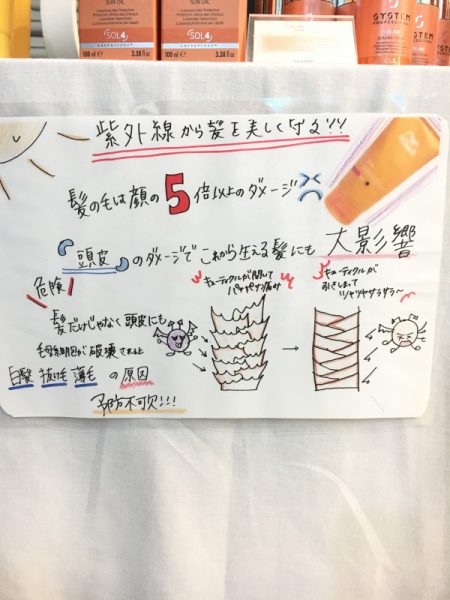 SUN OIL
SOL4
100 ml e 3.38 fl.oz
SUN OIL
SOL4
100 ml e 3.38 fl.oz
SYSTEM
PROFESSIONAL
SOLAR
SYSTEM
PROFESSIONAL
紫外線から髪を美しく守る!!
髪の毛は顔の5倍以上のダメージ
頭皮のダメージでこれから生える髪にも大影響
危険!
髪だけじゃなく頭皮にも
毛母細胞が破壊されると
白髪 抜け毛 薄毛 の原因
予防不可欠!!!
キューティクルが開いて
パサパサ傷み
キューティクルが
引きしまって
ツヤツヤサラサラ〜